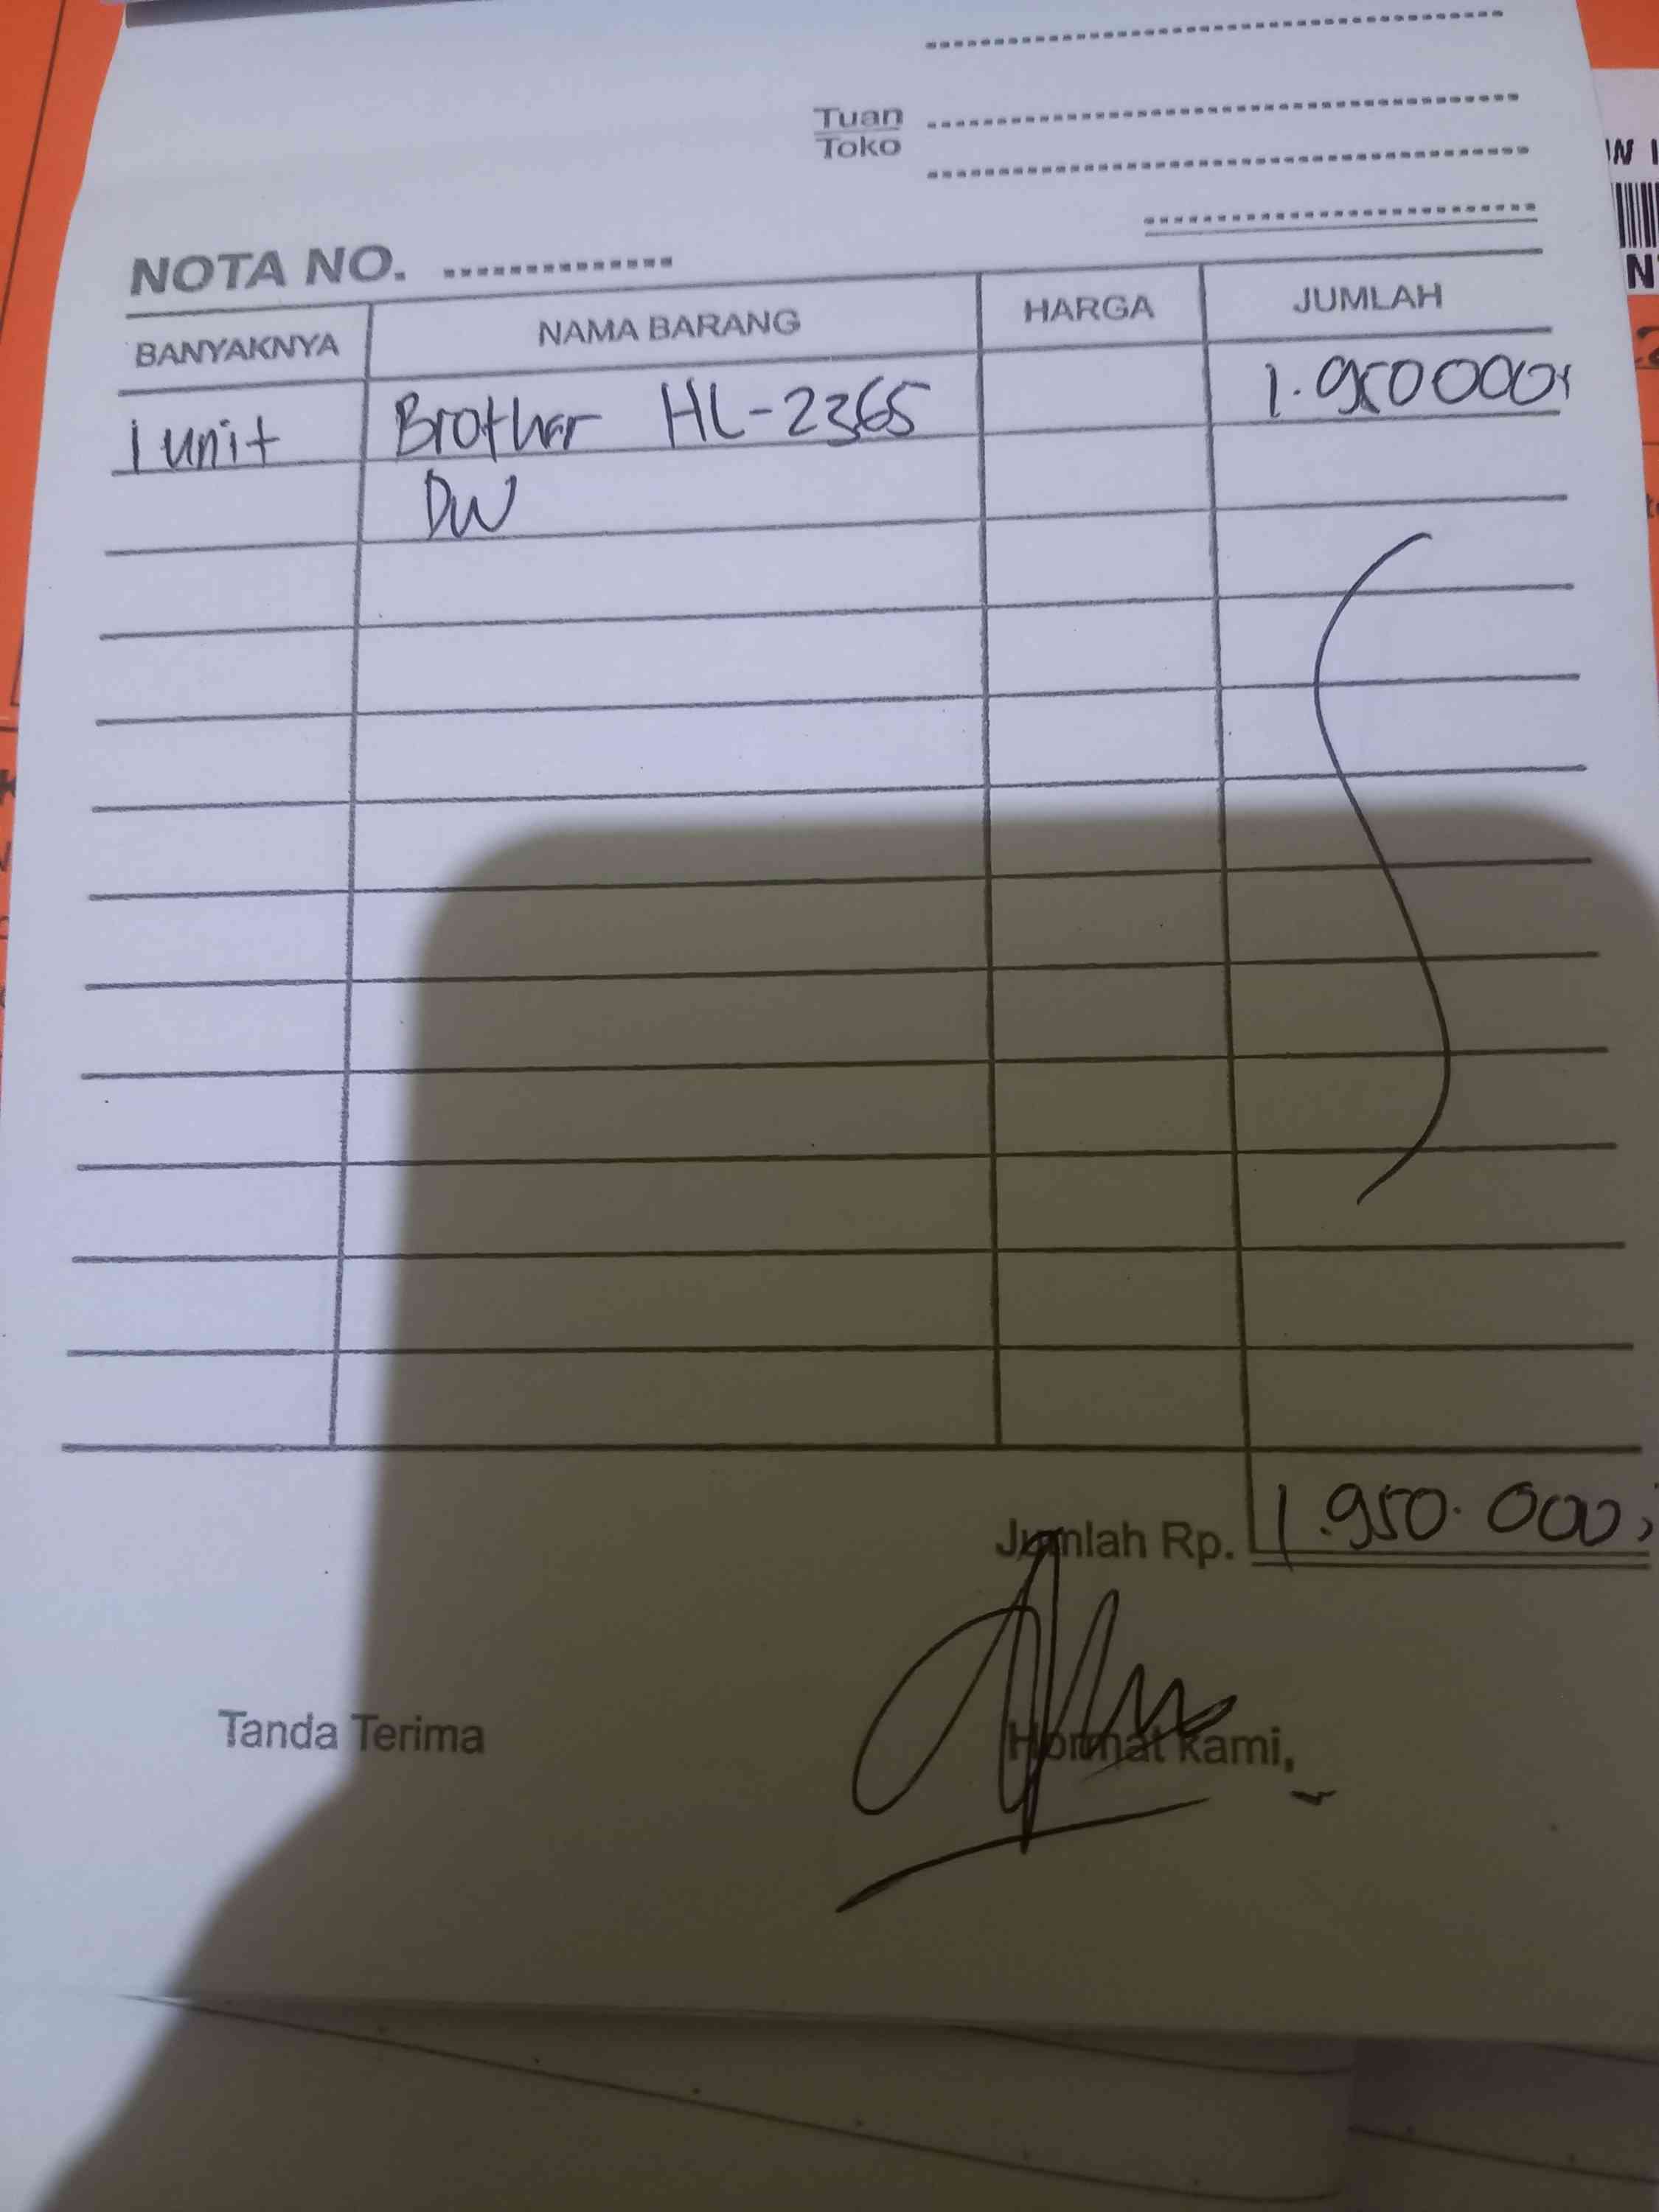 Tuan
Toko
NOTA NO.
BANYAKNYA NAMA BARANG HARGA JUMLAH
1 unit Brother HL-2365 1.950000,
DW
Jumlah Rp. 1.950.000,
Tanda Terima Hormat kami,